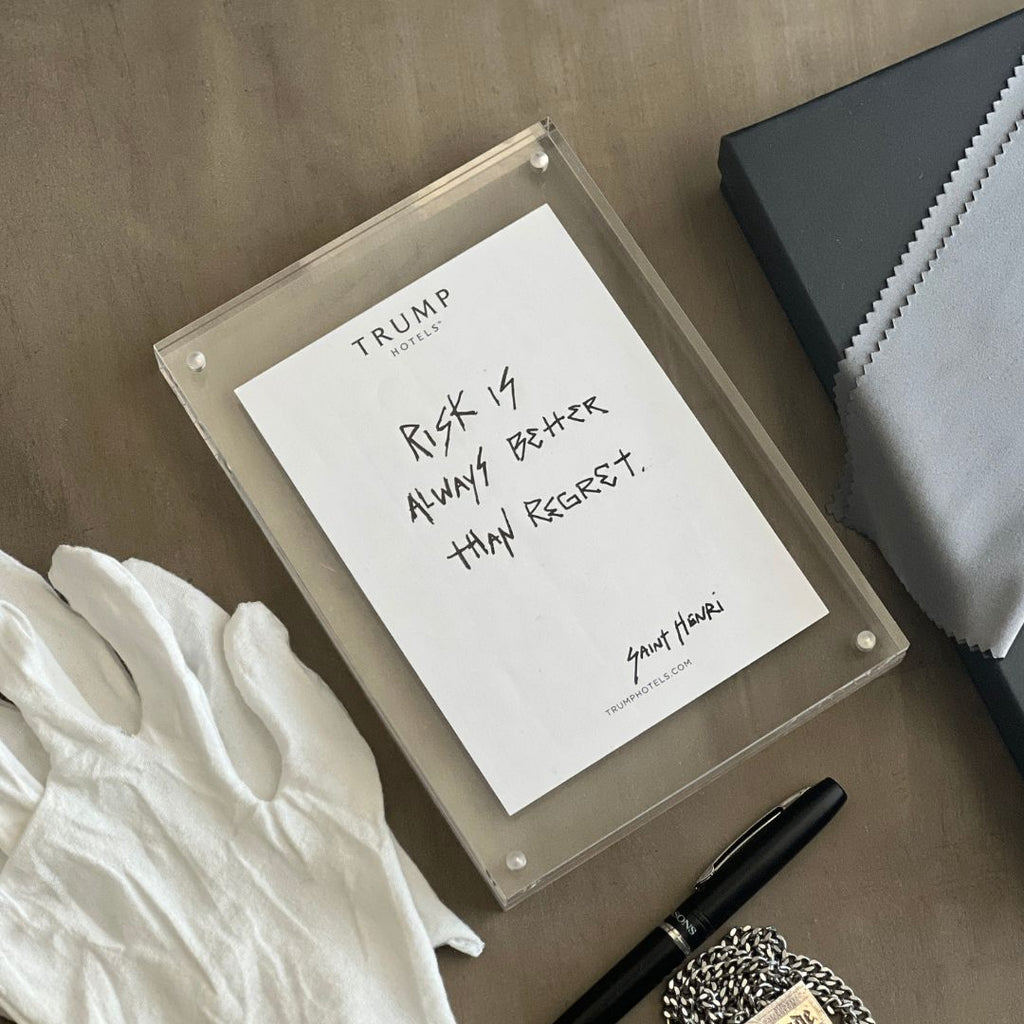 TRUMP
HOTELS™
RISK IS
ALWAYS BETTER
THAN REGRET.
SAINT HENRI
TRUMPHOTELS.COM
SONS